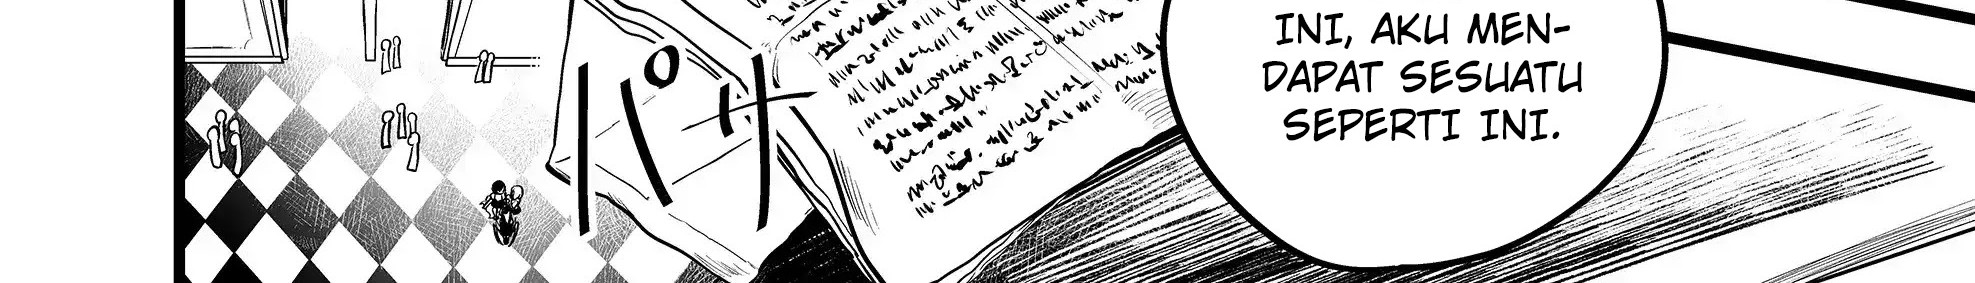 INI, AKU MEN-
DAPAT SESUATU
SEPERTI INI.
パサ